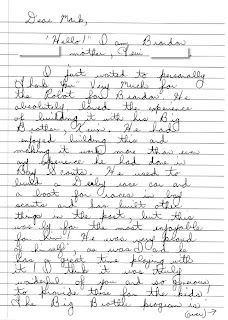 Dear Mark,
"Hello!" I am Brandon
mother, Terri
I just wanted to personally
"Thank You" Very Much for
the Robot for Brandon. He
absolutely loved the experience
of building it with his Big
Brother, Kevin. He had
enjoyed building this and
making it work more than even
any experience he had done in
Boy Scouts. He used to
build a Derby race car and
a boat for races in boy
scouts and has built other
things in the past, but this
was by far the most enjoyable
for him! He was very proud
of himself, as was I and he
has a great time playing with
it! I think it was truly
wonderful of you and so generous
to provide these for the kids.
The Big Brother program is
(over) →